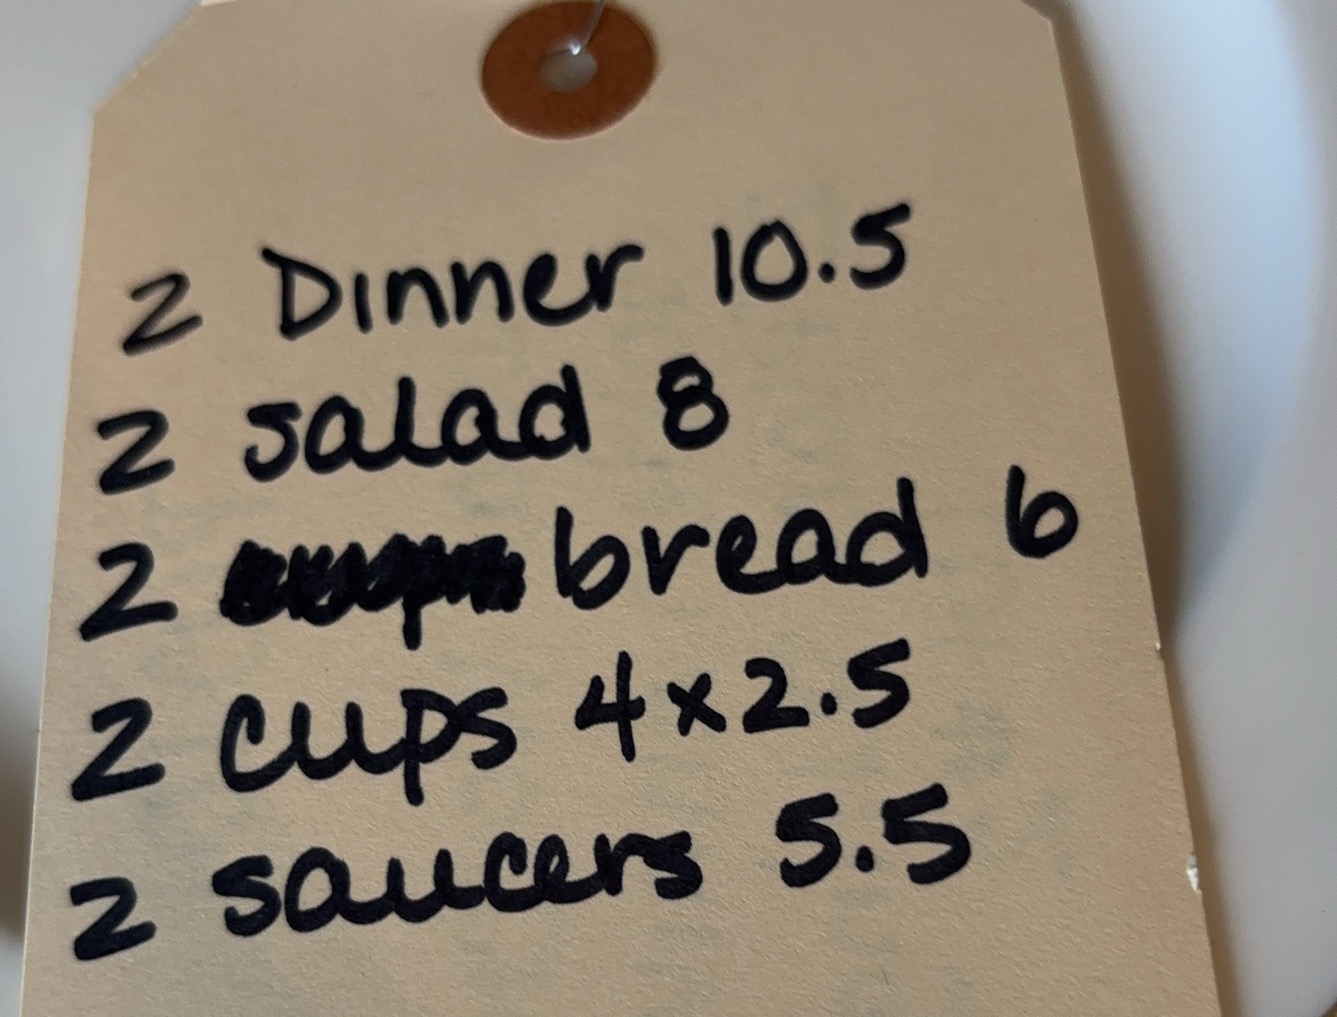 2 Dinner 10.5
2 salad 8
2 bread 6
2 cups 4x2.5
2 saucers 5.5